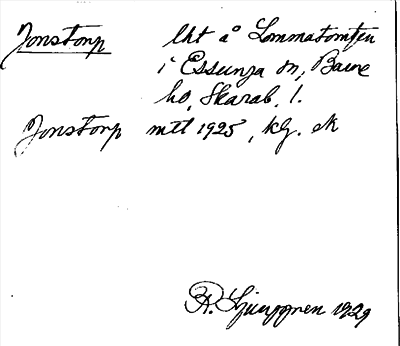 Jonstorp lht å Lommatomten
i Essunga sn, Barne
hd, Skarab. l.
Jonstorp mtl 1925, kg. ek
1929